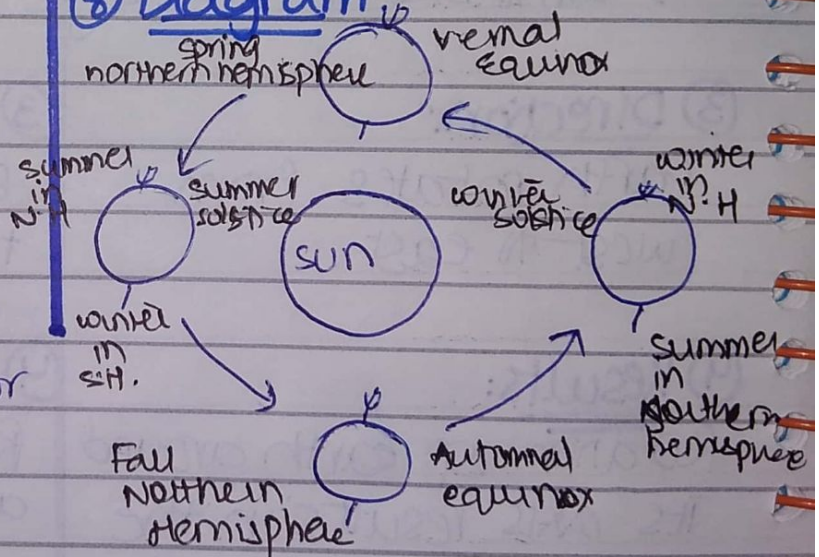 (2) Diagram
spring
northern hemisphere
vernal
Equinox
summer
in
N.H
summer
solstice
sun
winter
solstice
winter
in
N.H
winter
in
S.H.
summer
in
Northern
hemisphere
Fall
Northern
Hemisphere
Automnal
equinox